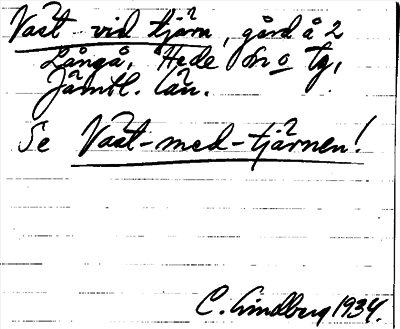 Väst vid tjärn, gård å 2
Långå, Hede sn o tg,
Jämtl. län.
Se Väst-med-tjärnen!
C. Lindberg 1934.